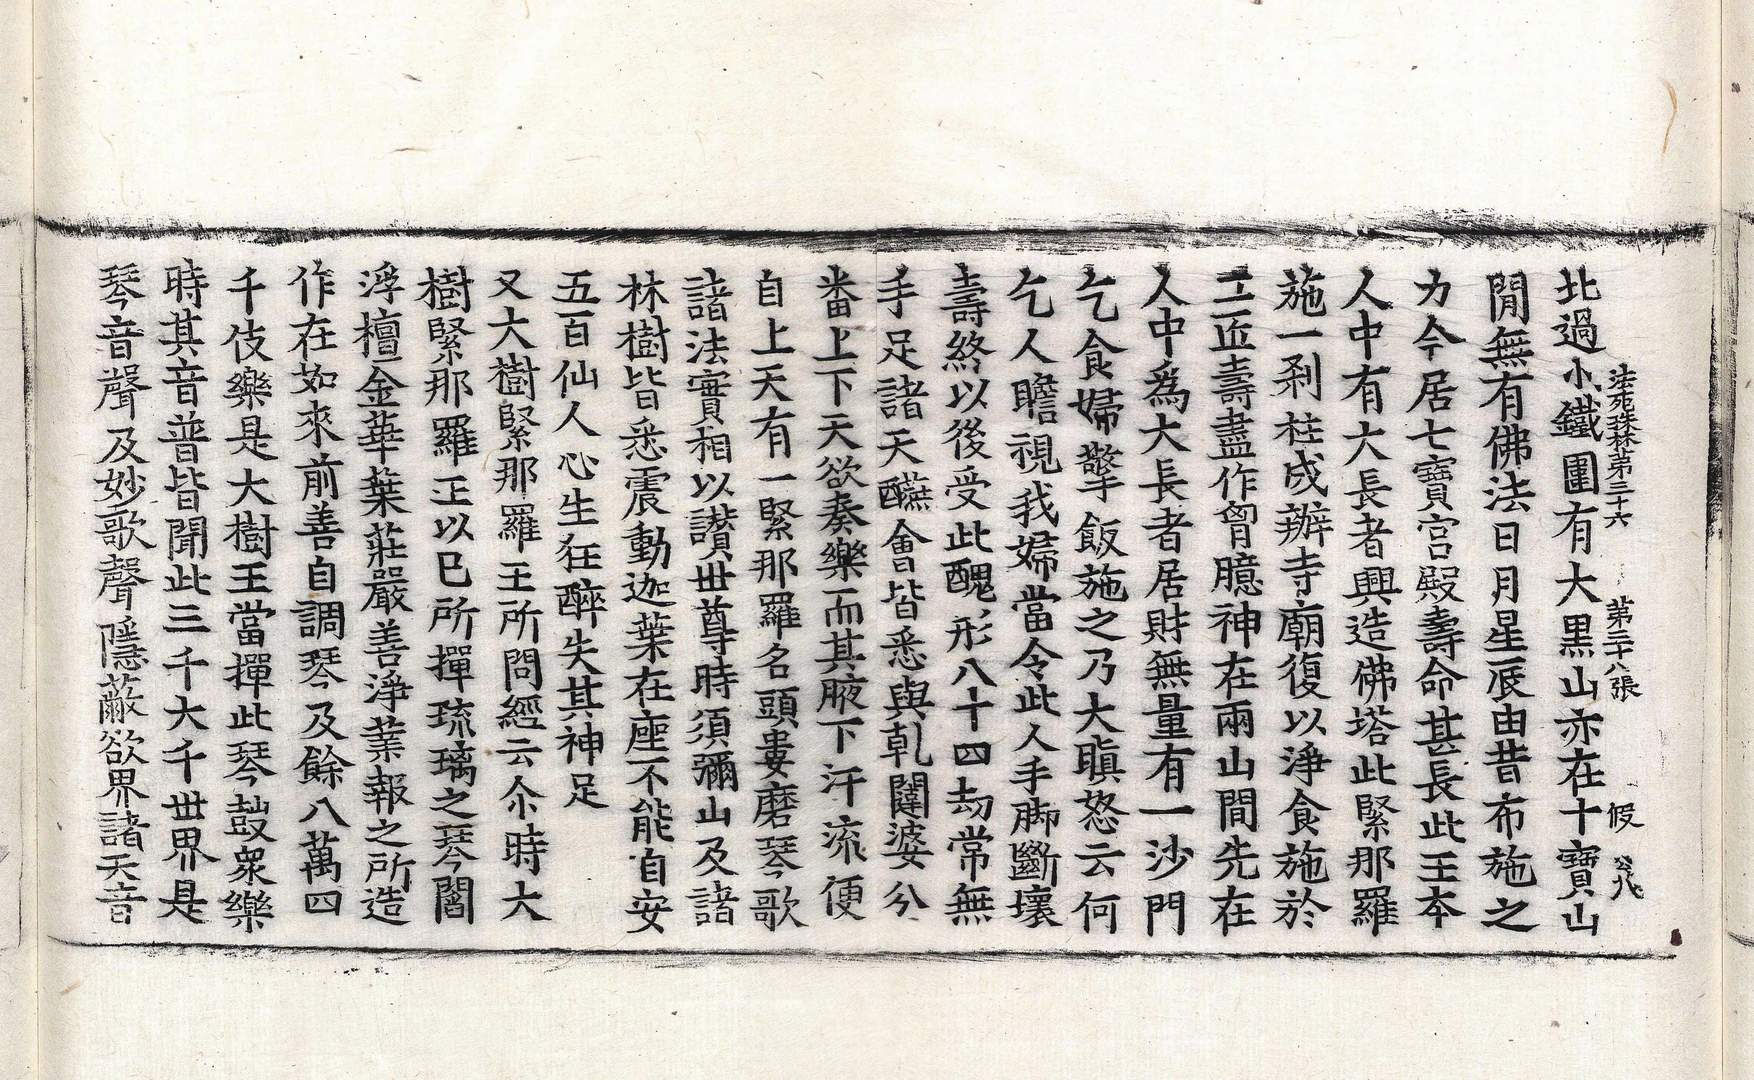 法苑珠林第三十六　第二十八張　假　公八
北過小鐵圍有大黒山亦在十寶山
閒無有佛法日月星辰由昔布施之
力今居七寶宮殿壽命甚長此王本
人中有大長者興造佛塔此緊那羅
施一刹柱成辦寺廟復以淨食施於
工匠壽盡作胷臆神在兩山間先在
人中爲大長者居財無量有一沙門
乞食婦擎飯施之乃大瞋怒云何
乞人瞻視我婦當令此人手脚斷壞
壽終以後受此醜形八十四劫常無
手足諸天讌會皆悉與乹闥婆分
番上下天欲奏樂而其腋下汗流便
自上天有一緊那羅名頭婁磨琴歌
諸法實相以讃世尊時須彌山及諸
林樹皆悉震動迦葉在座不能自安
五百仙人心生狂醉失其神足
又大樹緊那羅王所問經云尒時大
樹緊那羅王以巳所撣琉璃之琴閻
浮檀金華葉莊嚴善淨業報之所造
作在如來前善自調琴及餘八萬四
千伎樂是大樹王當撣此琴鼓衆樂
時其音普皆聞此三千大千世界是
琴音聲及妙歌聲隱蔽欲界諸天音